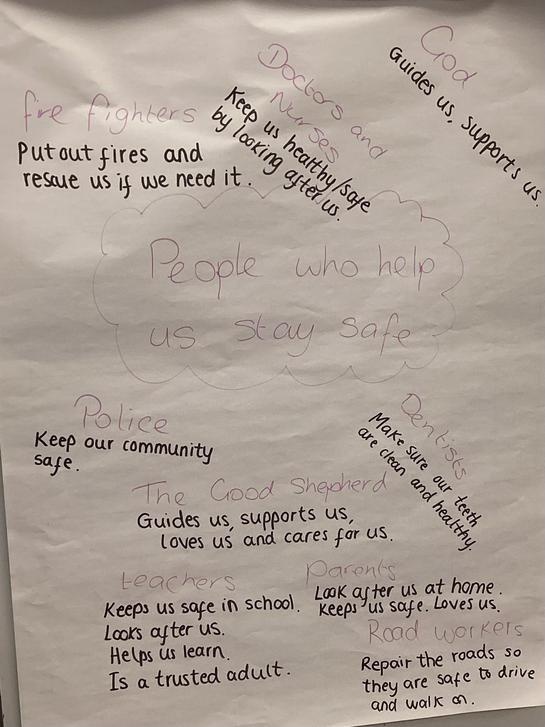 God
Guides us, supports us.
Doctors and
Nurses
Keep us healthy/safe
by looking after us.
fire fighters
Put out fires and
rescue us if we need it.
People who help
us stay safe
Police
Keep our community
safe.
Dentists
Make sure our teeth
are clean and healthy.
The Good Shepherd
Guides us, supports us,
loves us and cares for us.
teachers
Keeps us safe in school.
Looks after us.
Helps us learn.
Is a trusted adult.
Parents
Look after us at home.
Keeps us safe. Loves us.
Road workers
Repair the roads so
they are safe to drive
and walk on.